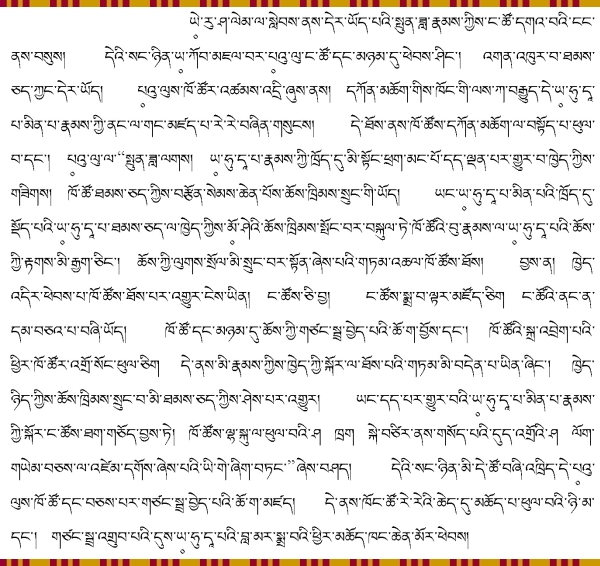 ཡེ་རུ་ཤ་ལེམ་ལ་སླེབས་ནས་དེར་ཡོད་པའི་སྤུན་ཟླ་རྣམས་ཀྱིས་ང་ཚོ་དགའ་བའི་ངང་
ནས་བསུས། དེའི་སང་ཉིན་ཡ༵་ཀོབ་མཇལ་བར་པའུ༵་ལུ་ང་ཚོ་དང་མཉམ་དུ་ཕེབས་ཤིང་། འགན་འཁུར་བ་ཐམས་
ཅད་ཀྱང་དེར་ཡོད། པའུ༵་ལུས་ཁོ་ཚོར་འཚམས་འདྲི་ཞུས་ནས། དཀོན་མཆོག་གིས་ཁོང་གི་ལས་ཀ་བརྒྱུད་དེ་ཡ༵་ཧུ་དཱ་
པ་མིན་པ་རྣམས་ཀྱི་ནང་ལ་གང་མཛད་པ་རེ་རེ་བཞིན་གསུངས། དེ་ཐོས་ནས་ཁོ་ཚོས་དཀོན་མཆོག་ལ་བསྟོད་པ་ཕུལ་
བ་དང་། པའུ༵་ལུ་ལ་“སྤུན་ཟླ་ལགས། ཡ༵་ཧུ་དཱ་པ་རྣམས་ཀྱི་ཁྲོད་དུ་མི་སྟོང་ཕྲག་མང་པོ་དད་ལྡན་པར་གྱུར་བ་ཁྱེད་ཀྱིས་
གཟིགས། ཁོ་ཚོ་ཐམས་ཅད་ཀྱིས་བརྩོན་སེམས་ཆེན་པོས་ཆོས་ཁྲིམས་སྲུང་གི་ཡོད། ཡང་ཡ༵་ཧུ་དཱ་པ་མིན་པའི་ཁྲོད་དུ་
སྡོད་པའི་ཡ༵་ཧུ་དཱ་པ་ཐམས་ཅད་ལ་ཁྱེད་ཀྱིས་མོ༵་ཤེའི་ཆོས་ཁྲིམས་སྤོང་བར་བསྐུལ་ཏེ་ཁོ་ཚོའི་བུ་རྣམས་ལ་ཡ༵་ཧུ་དཱ་པའི་ཆོས་
ཀྱི་རྟགས་མི་རྒྱག་ཅིང་། ཆོས་ཀྱི་ལུགས་སྲོལ་མི་སྲུང་བར་སྟོན་ཞེས་པའི་གཏམ་འཆལ་ཁོ་ཚོས་ཐོས། བྱས་ན། ཁྱེད་
འདིར་ཕེབས་པ་ཁོ་ཚོས་ཐོས་པར་འགྱུར་ངེས་ཡིན། ང་ཚོས་ཅི་བྱ། ང་ཚོས་སྨྲ་བ་ལྟར་མཛོད་ཅིག ང་ཚོའི་ནང་ན་
དམ་བཅའ་པ་བཞི་ཡོད། ཁོ་ཚོ་དང་མཉམ་དུ་ཆོས་ཀྱི་གཙང་སྦྲ་བྱེད་པའི་ཆོ་ག་བྱོས་དང་། ཁོ་ཚོའི་སྐྲ་འབྲེག་པའི་
ཕྱིར་ཁོ་ཚོར་འགྲོ་སོང་ཕུལ་ཅིག དེ་ནས་མི་རྣམས་ཀྱིས་ཁྱེད་ཀྱི་སྐོར་ལ་ཐོས་པའི་གཏམ་མི་བདེན་པ་ཡིན་ཞིང་། ཁྱེད་
ཉིད་ཀྱིས་ཆོས་ཁྲིམས་སྲུང་བ་མི་ཐམས་ཅད་ཀྱིས་ཤེས་པར་འགྱུར། ཡང་དད་པར་གྱུར་བའི་ཡ༵་ཧུ་དཱ་པ་མིན་པ་རྣམས་
ཀྱི་སྐོར་ང་ཚོས་ཐག་གཅོད་བྱས་ཏེ། ཁོ་ཚོས་ལྷ་སྐུ་ལ་ཕུལ་བའི་ཤ ཁྲག སྐེ་བཙིར་ནས་གསོད་པའི་དུད་འགྲོའི་ཤ ལོག་
གཡེམ་བཅས་ལ་འཛེམ་དགོས་ཞེས་པའི་ཡི་གེ་ཞིག་བཏང་”ཞེས་བཤད། དེའི་སང་ཉིན་མི་དེ་ཚོ་བཞི་འཁྲིད་དེ་པའུ༵་
ལུས་ཁོ་ཚོ་དང་བཅས་པར་གཙང་སྦྲ་བྱེད་པའི་ཆོ་ག་མཛད། དེ་ནས་ཁོང་ཚོ་རེ་རེའི་ཆེད་དུ་མཆོད་པ་ཕུལ་བའི་ཉི་མ་
དང་། གཙང་སྦྲ་འགྲུབ་པའི་དུས་ཡ༵་ཧུ་དཱ་པའི་བླ་མར་སྨྲ་བའི་ཕྱིར་མཆོད་ཁང་ཆེན་མོར་ཕེབས།